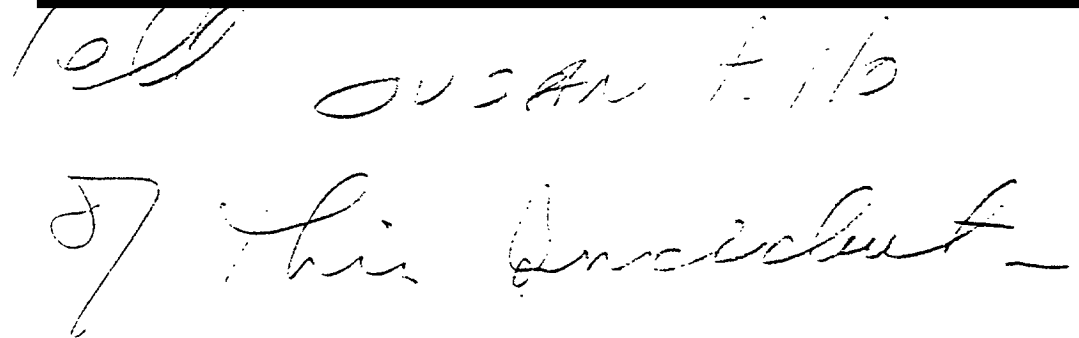 Tell SUSAN
of This Incident -